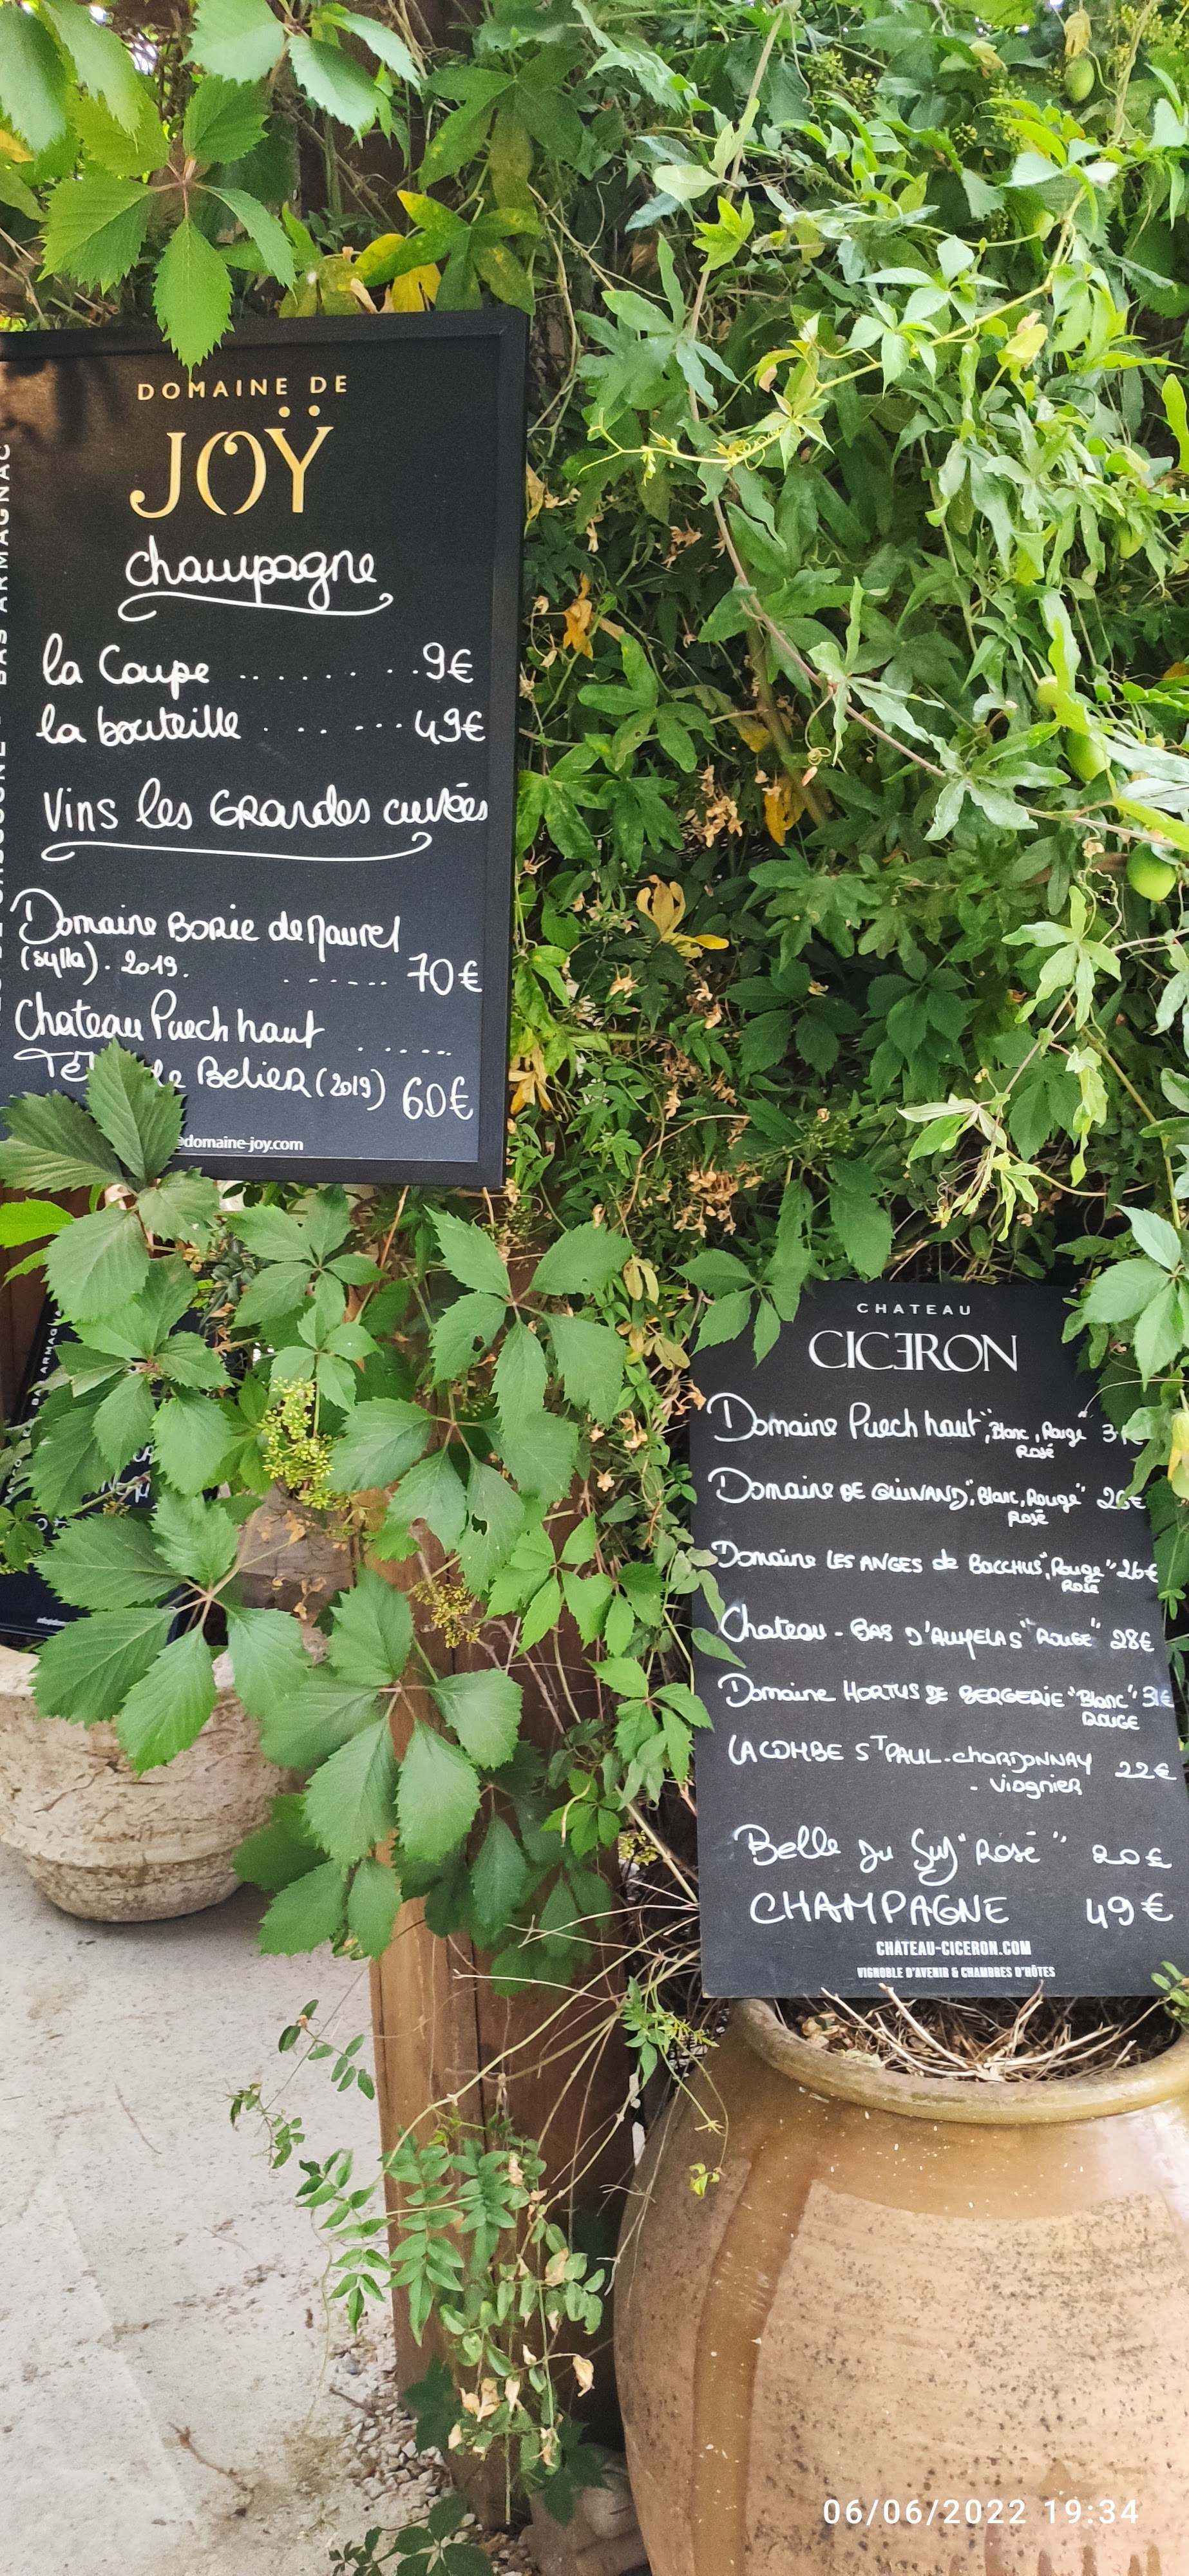 DOMAINE DE
JOŸ
BAS ARMAGNAC
champagne
la Coupe ........ 9€
la bouteille ....... 49€
Vins les GRandes cuvées
Domaine BORie de Maurel
(sylla). 2019. ...... 70€
Chateau Puech haut .....
de BelieR (2019) 60€
domaine-joy.com
CHATEAU
CICERON
Domaine Puech haut "Blanc, Rouge
Rosé
Domaine DE GUINAND, "Blanc, Rouge" 26€
Rosé
Domaine LES ANGES de BACCHUS "Rouge" 26€
Rosé
Chateau - BAS D'AUMELAS "ROUGE" 28€
Domaine HORTUS DE BERGERIE "Blanc" 31€
ROUGE
LA COMBE ST PAUL - chARDONNAY 22€
- ViogNieR
Belle du Sud "Rosé" 20€
CHAMPAGNE 49€
CHATEAU-CICERON.COM
VIGNOBLE D'AVENIR & CHAMBRES D'HÔTES
06/06/2022 19:34